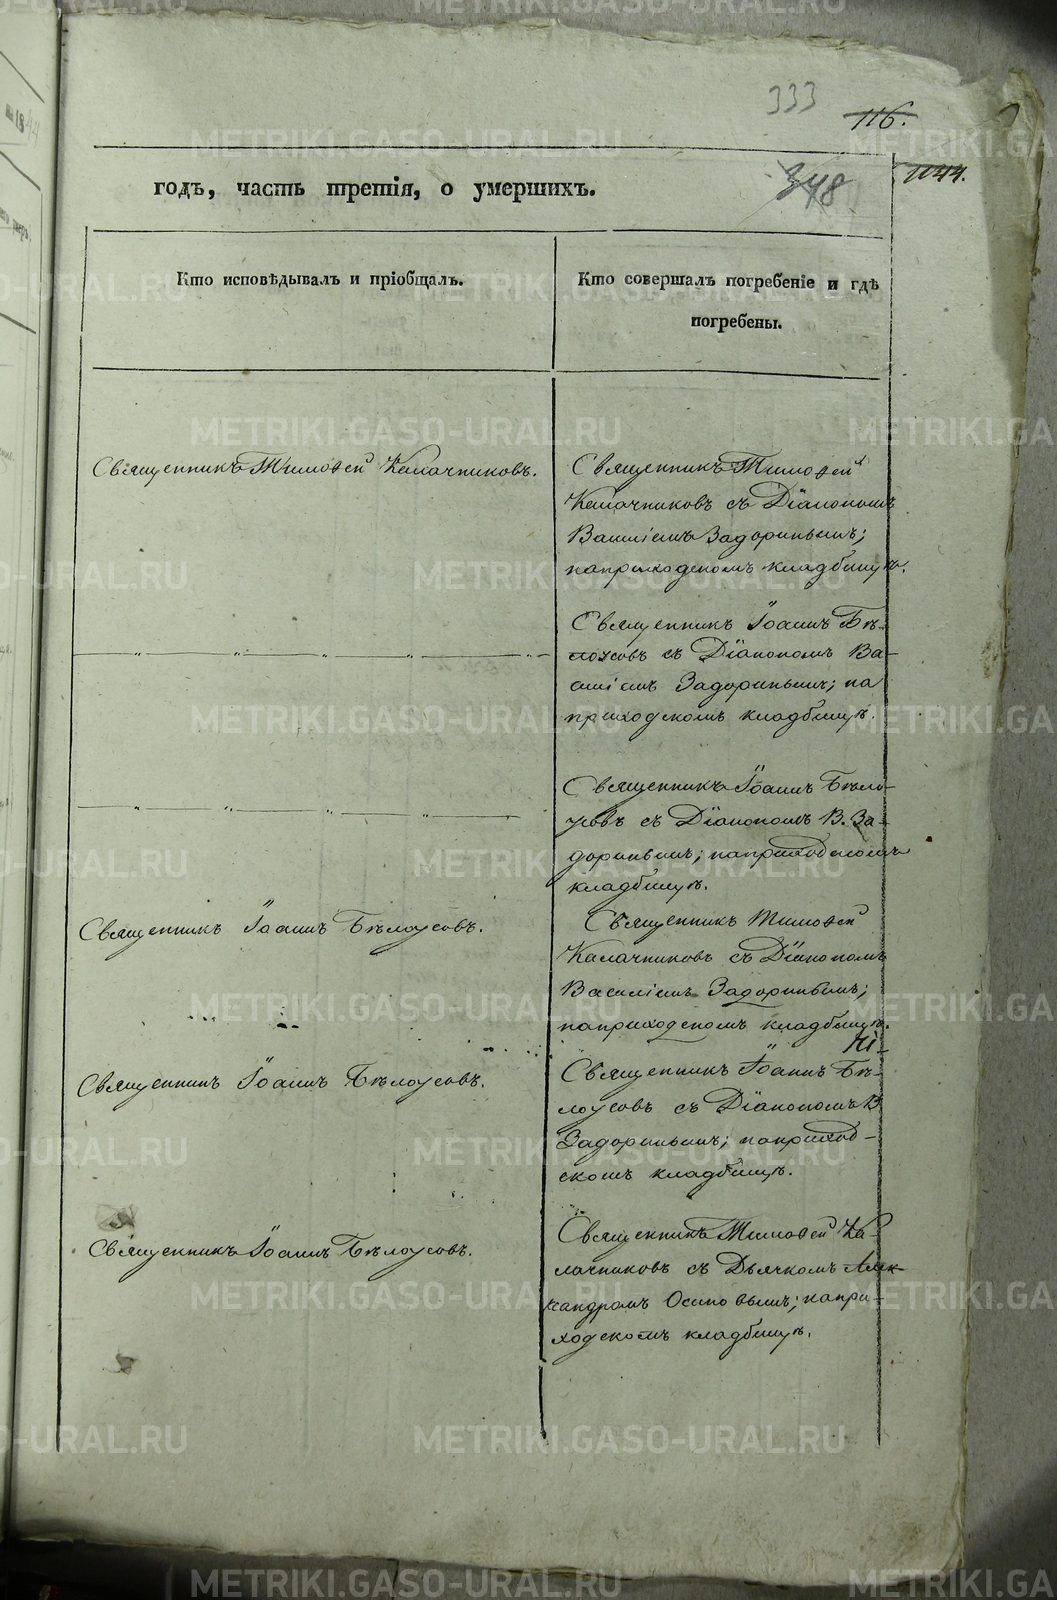 333
116.
годъ, часть третія, о умершихъ.
348
1144.
Кто исповѣдывалъ и пріобщалъ.
Кто совершалъ погребеніе и гдѣ
погребены.
Священникъ Тимоѳей Калачниковъ.
Священникъ Тимоѳей
Калачниковъ съ Діакономъ
Василіемъ Задоринымъ;
на приходскомъ кладбищѣ.
Священникъ Іоаннъ Бѣ-
лоусовъ съ Діакономъ Ва-
силіемъ Задоринымъ; на
приходскомъ кладбищѣ.
Священникъ Іоаннъ Бѣло-
усовъ съ Діакономъ В. За-
доринымъ; на приходскомъ
кладбищѣ.
Священникъ Іоаннъ Бѣлоусовъ.
Священникъ Тимоѳей
Калачниковъ съ Діакономъ
Василіемъ Задоринымъ;
на приходскомъ кладбищѣ.
Священникъ Іоаннъ Бѣлоусовъ.
Священникъ Іоаннъ Бѣ-
лоусовъ съ Діакономъ В.
Задоринымъ; на приход-
скомъ кладбищѣ.
Священникъ Іоаннъ Бѣлоусовъ.
Священникъ Тимоѳей Ка-
лачниковъ съ Дьячкомъ Алек-
сандромъ Осиповымъ; на при-
ходскомъ кладбищѣ.
METRIKI.GASO-URAL.RU